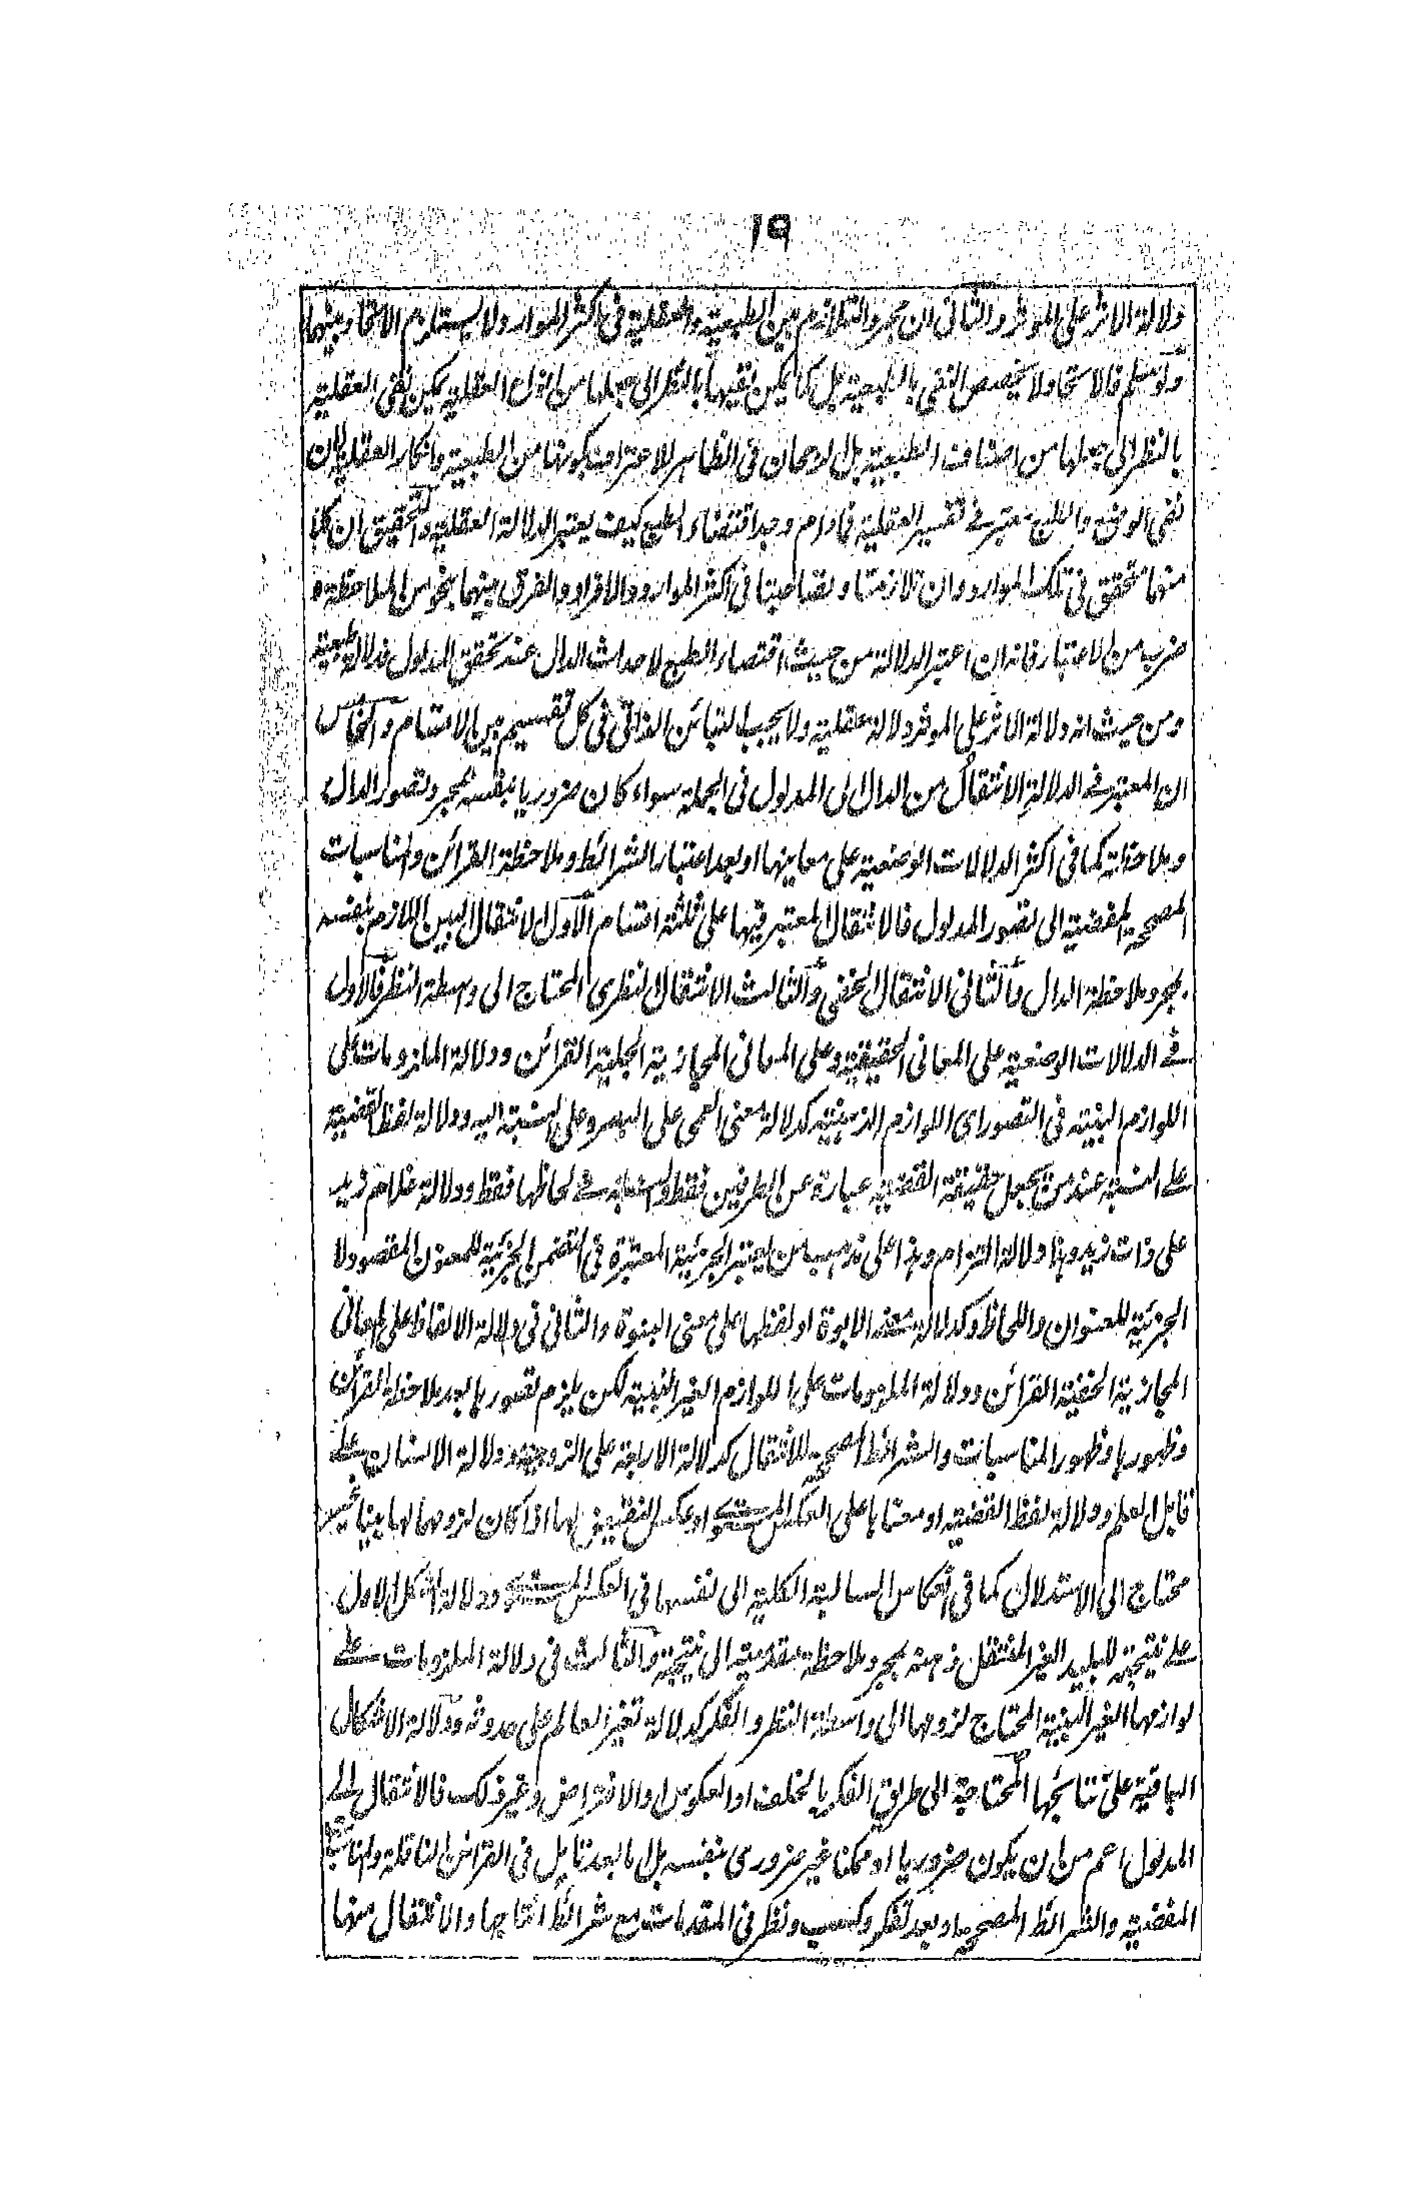 ١٩
دلالة الاثر على الموثر والثانى ان مجرد التلازم بين الطبعية والعقلية فى اكثر الموارد لا يستلزم الاتحاد بينهما
ولو سلم فالاتحاد لا يخصص النفى بالطبعية بل كما يمكن نفيها بالنظر الى جعلها من انواع العقلية يمكن نفى العقلية
بالنظر الى جعلها من اصناف الطبعية بل الرجحان فى الظاهر للاعتراف بكونها من الطبعية وانكار العقلية لان
نفى الوضع والطبع معتبر فے تفسير العقلية فمادام وجد اقتضاء الطبع كيف يعتبر الدلالة العقلية والتحقيق ان كلا
منهما تحقق فى تلك الموارد وان تلازمتا وتصاحبتا فى اكثر الموارد والافراد والفرق بينهما بنحو من الملاحظة و
ضرب من الاعتبار فانه ان اعتبر الدلالة من حيث اقتضاء الطبع لاحداث الدال عند تحقق المدلول فدلالة طبعية
ومن حيث انه دلالة الاثر على الموثر دلالة عقلية ولا يجب التبائن الذاتى فى كل تقسيم بين الاقسام والخامس
ان المعتبر فے الدلالة الانتقال من الدال الى المدلول فى الجملة سواء كان ضروريا بنفسه بمجرد تصور الدال
وملاحظته كما فى اكثر الدلالات الوضعية على معانيها او بعد اعتبار الشرائط وملاحظة القرائن والمناسبات
المصححة المفضية الى تصور المدلول فالانتقال المعتبر فيها على ثلثة اقسام الاول الانتقال البين اللازم بنفسه
بمجرد ملاحظة الدال والثانى الانتقال الخفى والثالث الانتقال النظرى المحتاج الى واسطة النظر فالاول
فے الدلالات الوضعية على المعانى الحقيقية وعلى المعانى المجازية الجلية القرائن ودلالة الملزومات على
اللوازم البينة فى التصور اى اللوازم الذهنية كدلالة معنى العمى على البصر وعلى النسبة اليه ودلالة لفظ القضية
علے النسبة عند من يجعل حقيقة القضية عبارة عن الطرفين فقط والنسبة فے لحاظها فقط ودلالة غلام زيد
على ذات زيد وهذا دلالة التزام وهذا على مذهب من يعتبر الجزئية المعتبرة فى التضمن الجزئية للمعنون المقصود لا
الجزئية للعنوان واللحاظ وكدلالة معنے الابوة او لفظها على معنى البنوة والثانى فى دلالة الالفاظ على المعانى
المجازية الخفية القرائن ودلالة الملزومات على اللوازم الغير البينة لكن يلزم تصورها بعد ملاحظة القرائن
وظهورها وظهور المناسبات والشرائط المصححة للانتقال كدلالة الاربعة على الزوجية ودلالة الانسان علے
قابل العلم ودلالة لفظ القضية او معناها على العكس المستوى او عكس النقيض لها اذا كان لزومها لها بينا غير
محتاج الى الاستدلال كما فى انعكاس السالبة الكلية الى نفسها فى العكس المستوى ودلالة الشكل الاول
علے نتيجته للبليد الغير المنتقل ذهنه بمجرد ملاحظة مقدمتيه الى نتيجته والثالث فى دلالة الملزومات علے
لوازمها الغير البينة المحتاج لزومها الى واسطة النظر والفكر كدلالة تغير العالم على حدوثه ودلالة الاشكال
الباقية على نتائجها المحتاجة الى طريق الفكر بالخلف او العكوس او الافتراض وغير ذلك فالانتقال الے
المدلول اعم من ان يكون ضروريا او ممكنا غير ضرورى بنفسه بل اما بعد تامل فى القرائن الناقلة والمناسبة
المفضية والشرائط المصححة او بعد تفكر وكسب ونظر فى المقدمات مع شرائط انتاجها والانتقال منها